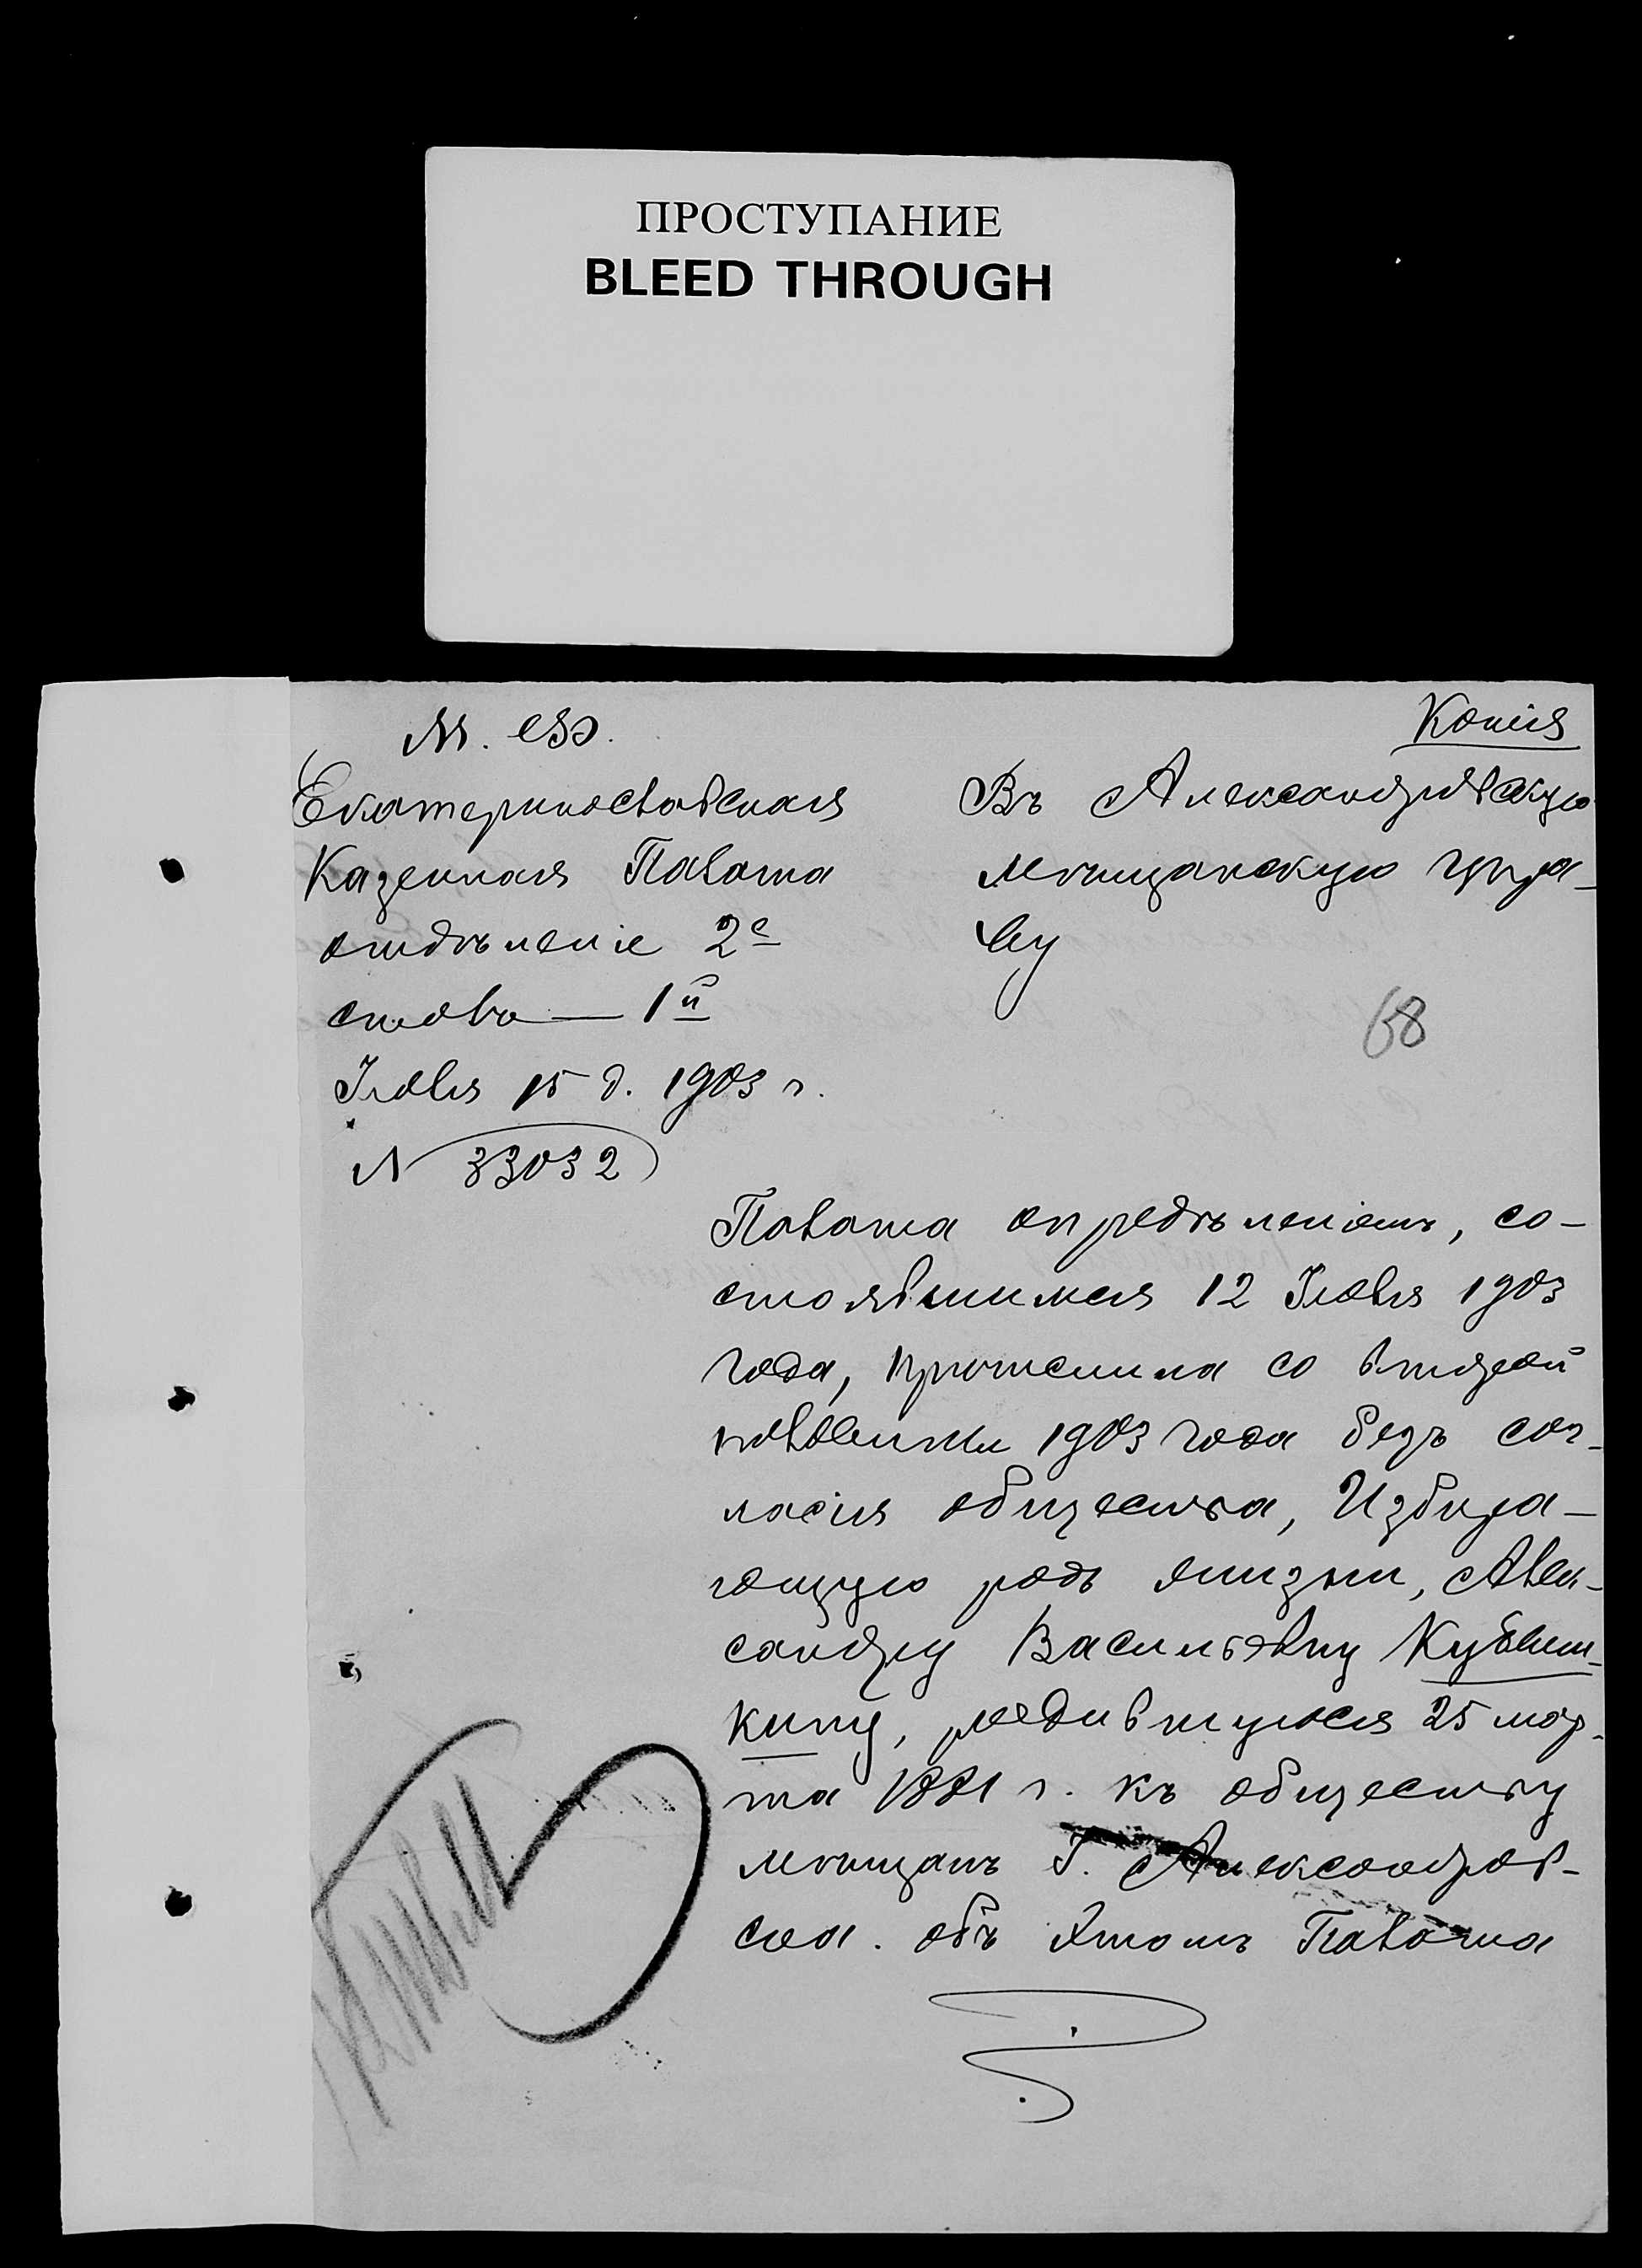 ПРОСТУПАНИЕ
BLEED THROUGH
Копія
М. Ф.
Екатеринославская
Казенная Палата
отдѣленіе 2е
стола — 1й
Іюля 15 д. 1903 г.
N 33032
Въ Александровскую
мѣщанскую упра-
ву
68
Палата опредѣленіемъ, со-
стоявшимся 12 Іюля 1903
года, причислила со второй
половины 1903 года безъ сог-
ласія общества, Избира-
ющую родъ жизни, Алек-
сандру Васильевну Кубыш-
кину, родившуюся 25 мар-
та 1881 г. къ обществу
мѣщанъ Г. Александров-
ска. объ этомъ Палата